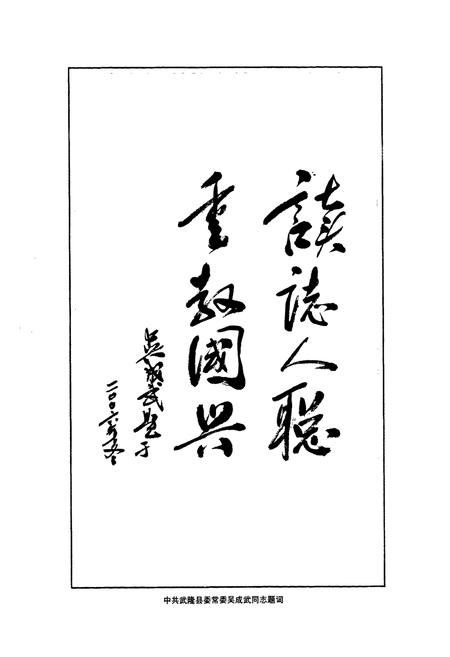 读誌人聪
重教國兴
吴成武题于
二〇〇六年冬
中共武隆县委常委吴成武同志题词